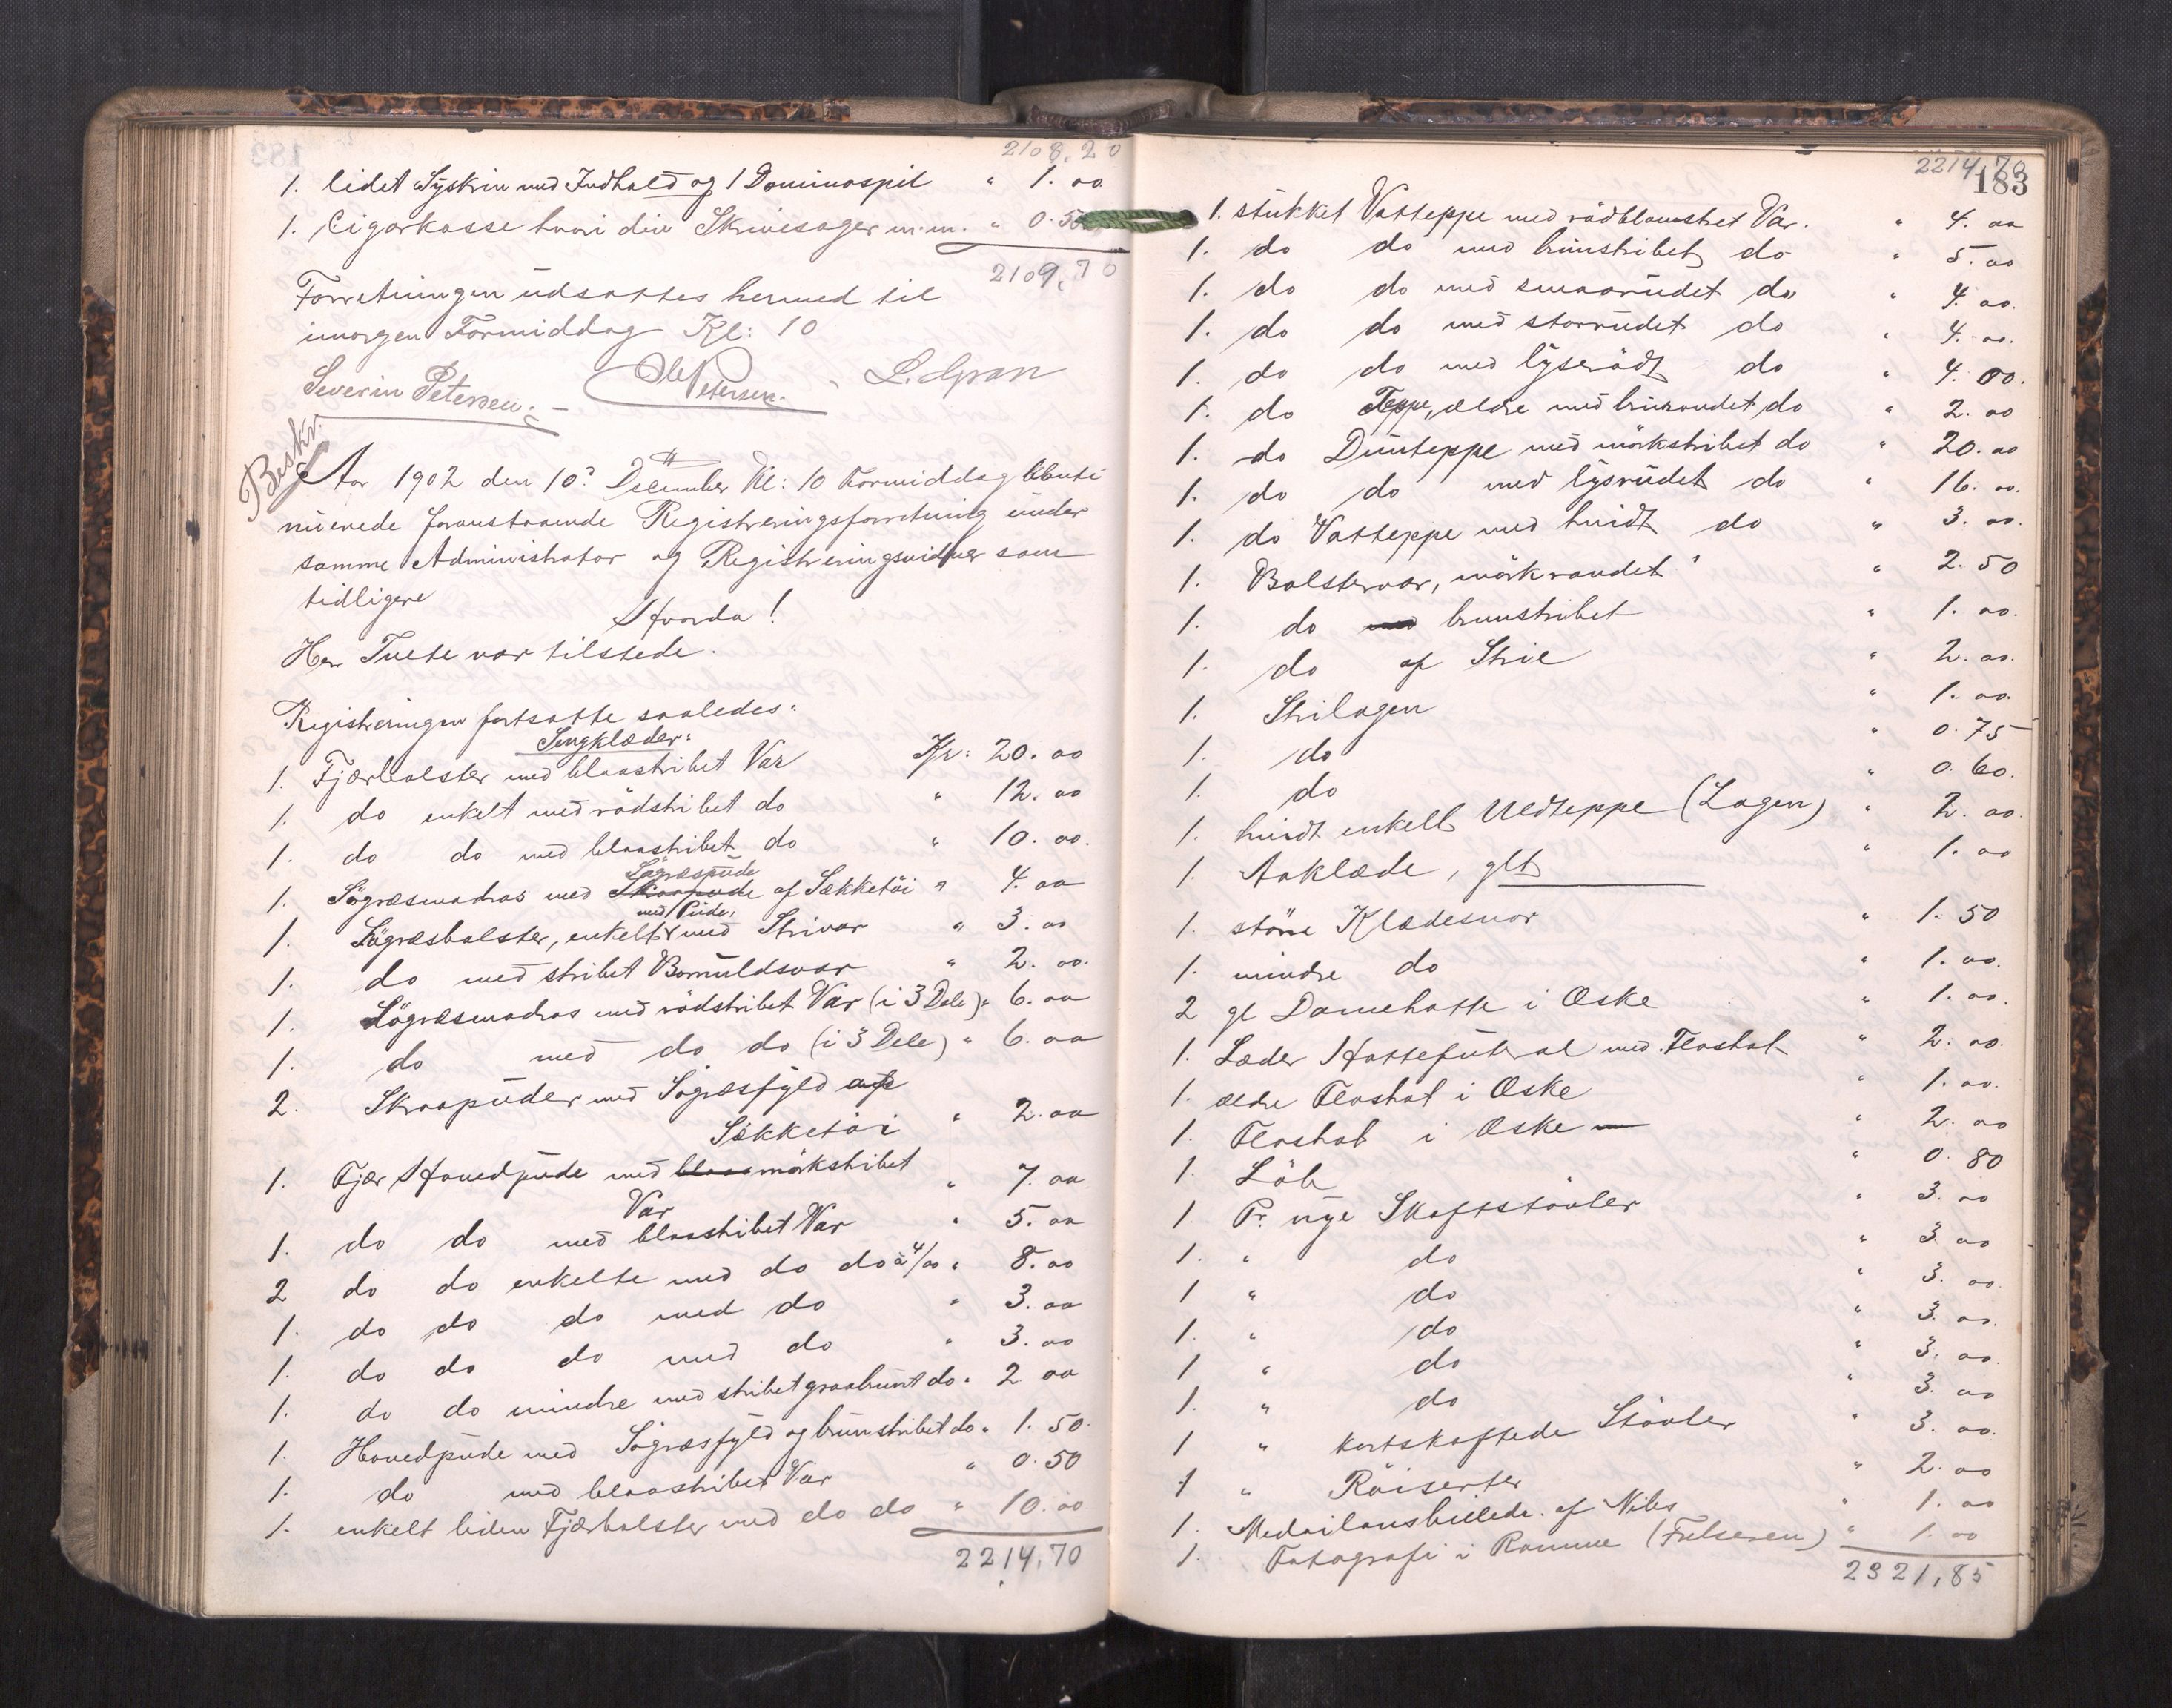 2108,20
1. lidet Syskrin med Indhold og 1 Dominospil " 1.00
1. Cigarkasse hvori div Skrivesager m.m. " 0.50
2109,70
Forretningen udsattes hermed til
imorgen Formiddag Kl: 10
Severin Petersen. Ole Petersen. L. Gran
Beskr.
Aar 1902 den 10. December Kl: 10 Formiddag konti
nuerede foranstaaende Registreringsforretning under
samme Administrator og Registreringsvidner som
tidligere
Hvorda!
Herr Tvete var tilstede.
Registreringen fortsatte saaledes:
Sengklæder:
1. Fjærbolster med blaastribet Var Kr: 20.00
1. do enkelt med rödstribet do " 12.00
1. do do med blaastribet do " 10.00.
1. Sögræsmadras med Skraapude Sögræspude af Sækketöi " 4.00
1. Sögræsbolster, enkelt med Pude, med Strivar " 3.00
1. do med stribet Bomuldsvar " 2.00.
1. Sögræsmadras med rödstribet Var (i 3 Dele) " 6.00
1. do med do do (i 3 Dele) " 6.00
2. Skraapuder med Sögræsfyld af
Sækketöi " 2.00
1. Fjær Hovedpude med blaa mörkstribet
Var " 7.00
1. do do med blaastribet Var " 5.00
2 do do enkelte med do do à 4/00 " 8.00
1. do do do med do " 3.00
1. do do do med do " 3.00
1. do do mindre med stribet graabrunt do " 2 00
1. Hovedpude med Sögræsfyld og brunstribet do " 1.50.
1. do med blaastribet Var " 0.50
1. enkelt liden Fjærbolster med do do " 10.00
2214,70
2214,70
183
1. stukket Vatteppe med rödblomstret Var. " 4.00
1. do do med brunstribet do " 5.00
1. do do med smaarudet do " 4.00.
1. do do med storrudet do " 4.00.
1. do do med lyserödt do " 4.00.
1. do Teppe, ældre med brunrandet do " 2.00
1. do Dunteppe med mörkstribet do " 20.00
1. do do med lysrudet do " 16.00.
1. do Vatteppe med hvidt do " 3.00.
1. Bolstervar, mörkrandet " 2.50
1. do med brunstribet " 1.00.
1. do af Strie " 2.00.
1. Strilagen " 1.00.
1. do " 0.75
1. do " 0.60.
1. hvidt enkelt Uldteppe (Lagen) " 2.00.
1. Aaklæde, glt " 1.00
1. större Klædesnor " 1.50
1. mindre do " 1.00.
2 gl Damehatte i Æske " 1.00.
1. Læder Hattefuteral med Floshat " 2.00.
1. ældre Floshat i Æske " 1.00.
1. Floshat i Æske " 2.00
1. Löb " 0.80
1. Pr. nye Skaftstövler " 3.00
1. " do " 3.00
1 " do " 3.00.
1. " do " 3.00.
1 " do " 3.00.
1. " do " 3.00
1 " kortskaftede Stövler " 3.00.
1 " Röiserter " 2.00
1. Medailonsbillede af Nibs " 1.00
1. Fotografi i Ramme (Frelseren) " 1.00
2321,85